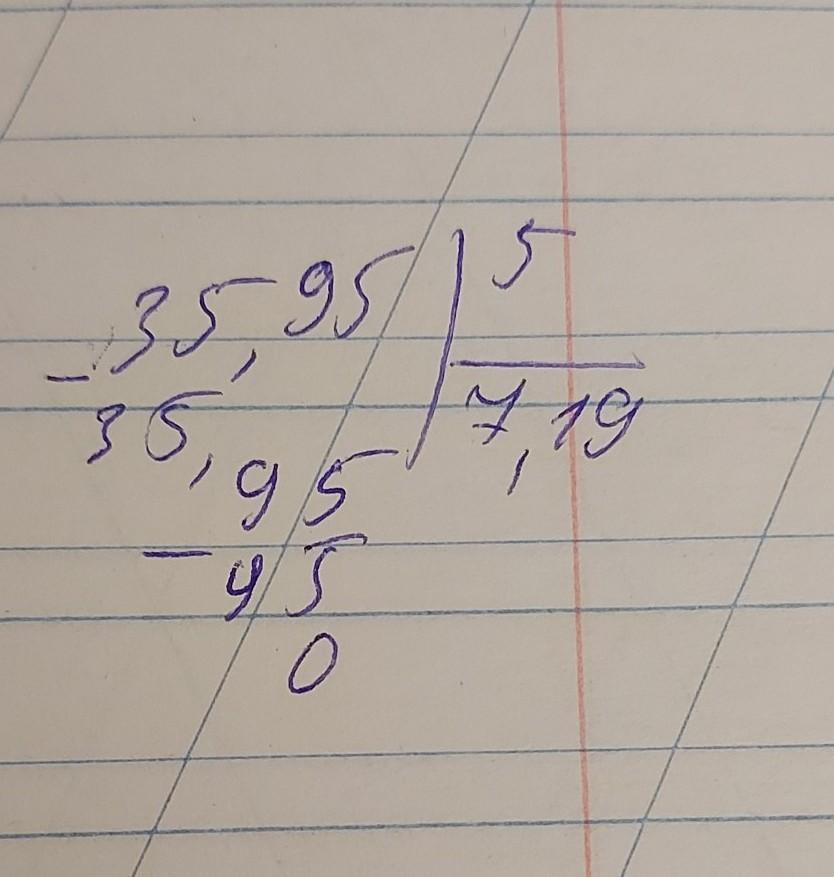 35,95 | 5
- 35, 7,19
95
- 45
0